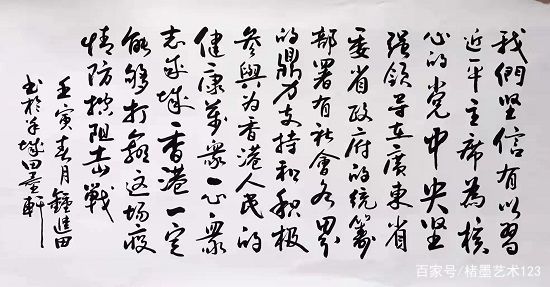 我們坚信有以習
近平主席為核
心的党中央坚
强領导在廣東省
委省政府的统籌
部署有社會各界
的鼎力支持和积极
參與为香港人民的
健康萬衆一心衆
志成城香港一定
能够打赢这场疫
情防控阻击戰
壬寅春月鍾進田
书於羊城田墨軒
百家号/楮墨艺术123